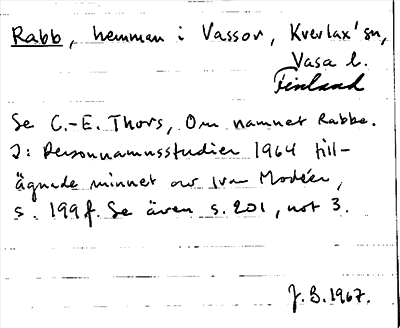 Rabb, hemman i Vassor, Kvevlax' sn,
Vasa l.
Finland
Se C.-E. Thors, Om namnet Rabbe.
I: Personnamnsstudier 1964 till-
ägnade minnet av Ivar Modéer,
s. 199f. Se även s. 201, not 3.
J.B. 1967.